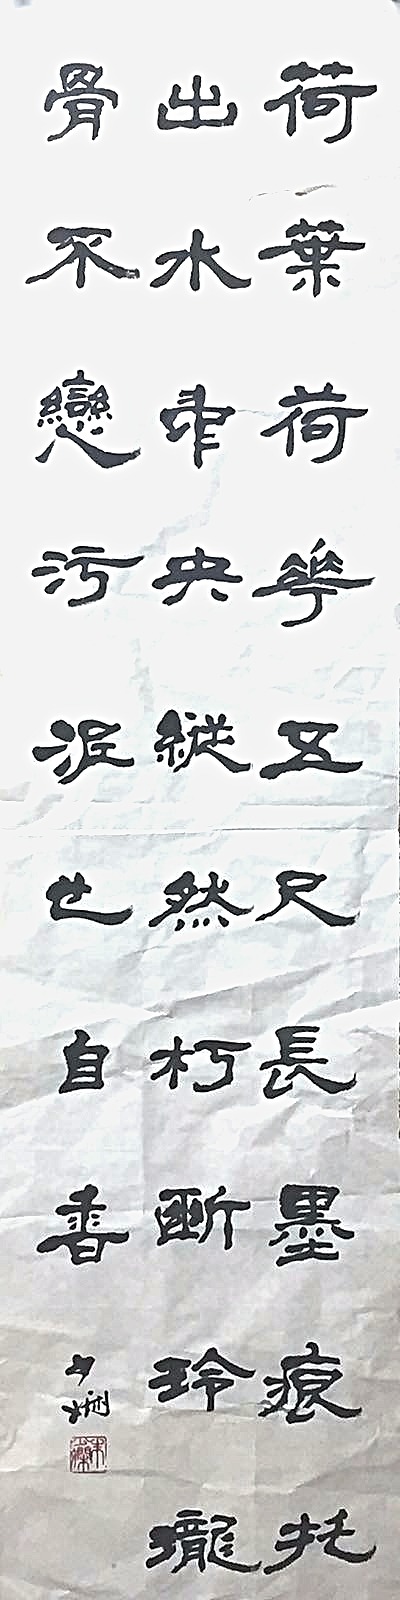 荷葉荷華五尺長墨痕托
出水中央縱然朽斷玲瓏
骨不戀污泥也自香